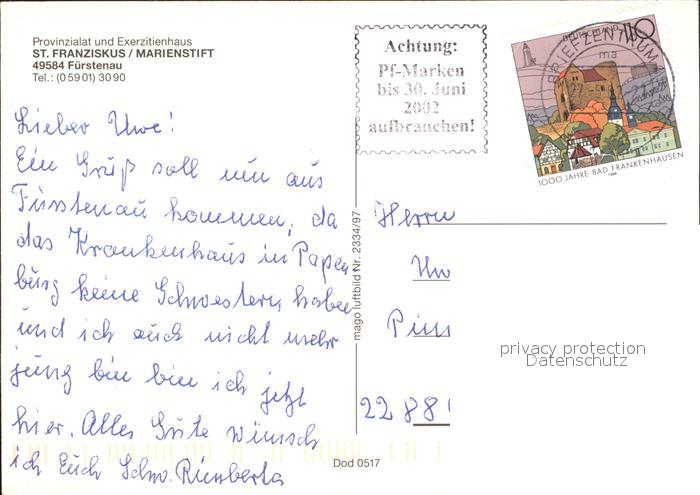 Provinzialat und Exerzitienhaus
ST. FRANZISKUS / MARIENSTIFT
49584 Fürstenau
Tel.: (05901) 3090
Lieber Uwe!
Ein Gruß soll nun aus
Fürstenau kommen, da
das Krankenhaus in Papen
burg keine Schwestern haben
und ich auch nicht mehr
jung bin bin ich jetzt
hier. Alles Gute wünsch
ich Euch Schw. Rimberta
Achtung:
Pf-Marken
bis 30. Juni
2002
aufbrauchen!
DEUTSCHLAND 110
BRIEFZENTRUM
ma
1000 JAHRE BAD FRANKENHAUSEN
1998
mago luftbild Nr. 2334/97
Herrn
Uw
22 88
privacy protection
Datenschutz
Dod 0517